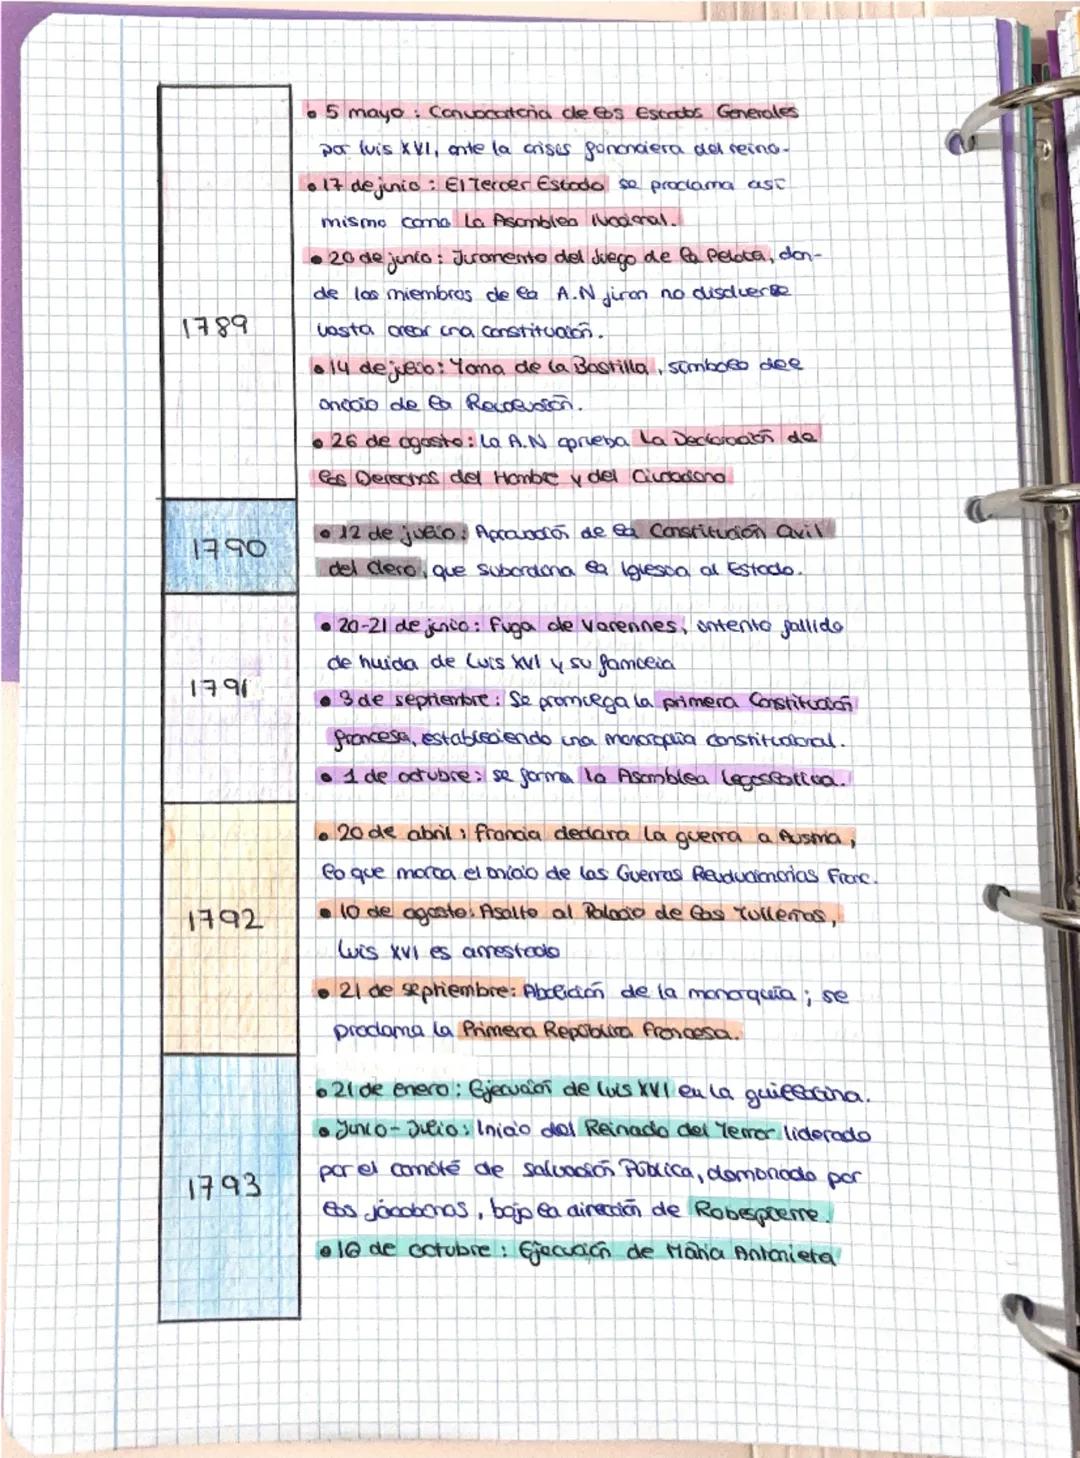 1789
• 5 mayo: Convocatoria de los Estados Generales
por Luis XVI, ante la crisis financiera del reino.
• 17 de junio: El Tercer Estado se proclama así
mismo como la Asamblea Nacional.
• 20 de junio: Juramento del Juego de la Pelota, don-
de los miembros de la A.N juran no disolverse
hasta crear una constitución.
• 14 de julio: Toma de la Bastilla, símbolo del
inicio de la Revolución.
• 26 de agosto: La A.N aprueba la Declaración de
los Derechos del Hombre y del Ciudadano
1790
• 12 de julio: Aprobación de la Constitución Civil
del clero, que subordina la Iglesia al Estado.
1791
• 20-21 de junio: Fuga de Varennes, intento fallido
de huida de Luis XVI y su familia
• 3 de septiembre: Se promulga la primera Constitución
francesa, estableciendo una monarquía constitucional.
• 1 de octubre: se forma la Asamblea Legislativa.
1792
• 20 de abril: Francia declara la guerra a Austria,
lo que marca el inicio de las Guerras Revolucionarias Franc.
• 10 de agosto: Asalto al Palacio de las Tullerías,
Luis XVI es arrestado
• 21 de septiembre: Abolición de la monarquía; se
proclama la Primera República francesa.
1793
• 21 de enero: Ejecución de Luis XVI en la guillotina.
• Junio-Julio: Inicio del Reinado del Terror liderado
por el comité de salvación Pública, dominado por
los jacobinos, bajo la dirección de Robespierre.
• 16 de octubre: Ejecución de María Antonieta